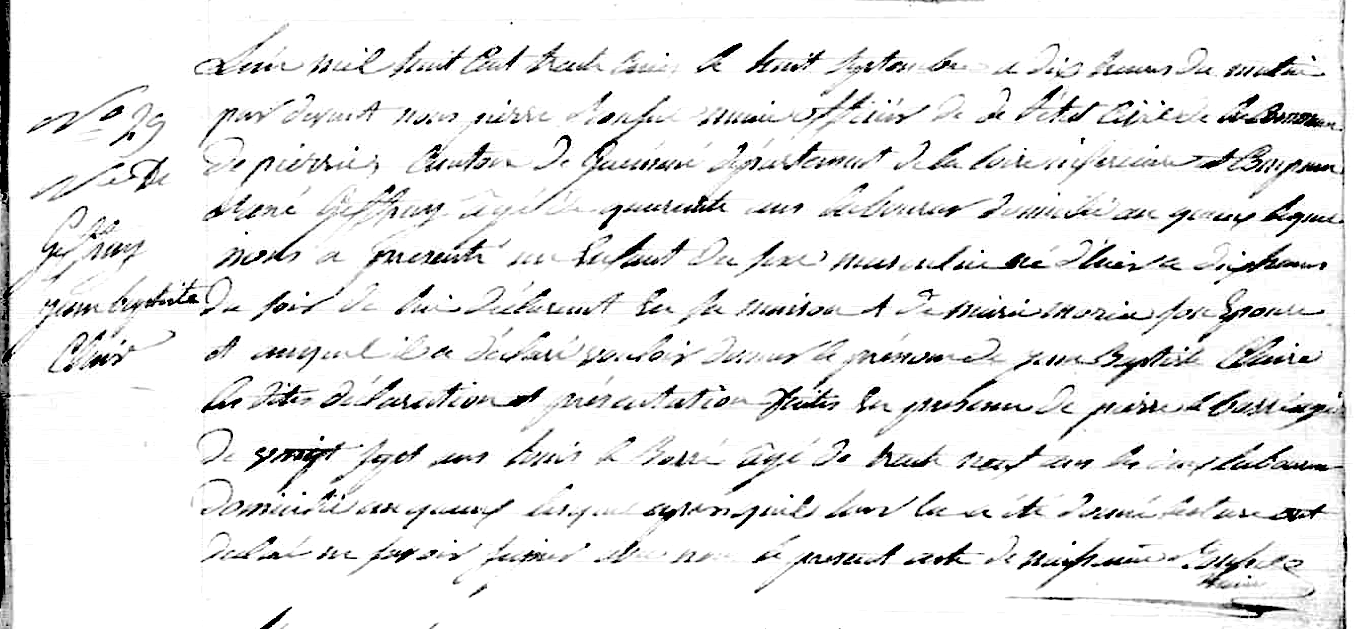 N° 29
N ce De
Geffray
jean baptiste
Clair
L'an mil huit Cent trente cinq le huit septembre a dix heures du matin
par devant nous pierre maire officier de de l'état Civil de la Commune
De pierric, Canton de Guémené département de la loire inferieure est Comparu
René Geffray agé de quarente ans laboureur domicilié au
nous a presenté un Enfant du sexe masculin né d'hier a dix heures
du soir de lui déclarent En sa maison et de marie son Epouse
et auquel il a déclaré vouloir donner le prénom de jean Baptiste Claire
les dites déclaration et présentation faites En presence de pierre agé
de vingt sept ans louis agé de trente neuf ans les deux laboureur
Domicilié au après quil leur en a été donné lecture ont
déclaré ne savoir signer avec nous le present acte de naissance
maire